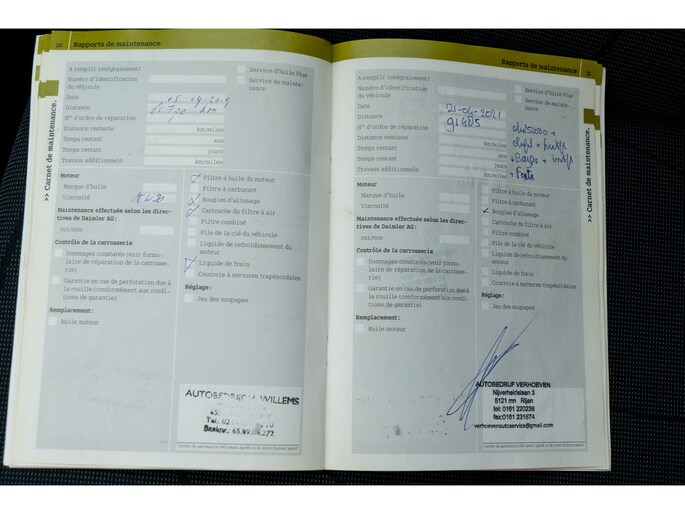 26 Rapports de maintenance
A remplir intégralement!
Numéro d'identification
du véhicule
Date
Distance
N° d'ordre de réparation
Distance restante km/miles
Temps restant ans
Temps restant jours
Travaux additionnels km/miles
Service d'huile Plus
Service de mainte-
nance
>> Carnet de maintenance.
Moteur
Marque d'huile
Viscosité
Maintenance effectuée selon les direc-
tives de Daimler AG:
oui/non
Contrôle de la carrosserie
Dommages constatés (voir formu-
laire de réparation de la carrosse-
rie)
Garantie en cas de perforation due à
la rouille (conformément aux condi-
tions de garantie)
Remplacement:
Huile moteur
Filtre à huile du moteur
Filtre à carburant
Bougies d'allumage
Cartouche du filtre à air
Filtre combiné
Pile de la clé du véhicule
Liquide de refroidissement du
moteur
Liquide de frein
Courroie à nervures trapézoïdales
Réglage:
Jeu des soupapes
WILLEMS
Rapports de maintenance
A remplir intégralement!
Numéro d'identification
du véhicule
Date 21-04-2021
Distance
N° d'ordre de réparation
Distance restante km/miles
Temps restant ans
Temps restant jours
Travaux additionnels km/miles
Service d'huile Plus
Service de mainte-
nance
>> Carnet de maintenance.
Moteur
Marque d'huile
Viscosité
Maintenance effectuée selon les direc-
tives de Daimler AG:
oui/non
Contrôle de la carrosserie
Dommages constatés (voir formu-
laire de réparation de la carrosse-
rie)
Garantie en cas de perforation due à
la rouille (conformément aux condi-
tions de garantie)
Remplacement:
Huile moteur
Filtre à huile du moteur
Filtre à carburant
Bougies d'allumage
Cartouche du filtre à air
Filtre combiné
Pile de la clé du véhicule
Liquide de refroidissement du
moteur
Liquide de frein
Courroie à nervures trapézoïdales
Réglage:
Jeu des soupapes
AUTOBEDRIJF VERHOEVEN
Nijverheidslaan 3
5121 mn Rijen
tel: 0161 220236
fax:0161 231674
verhoevenautoservice@gmail.com